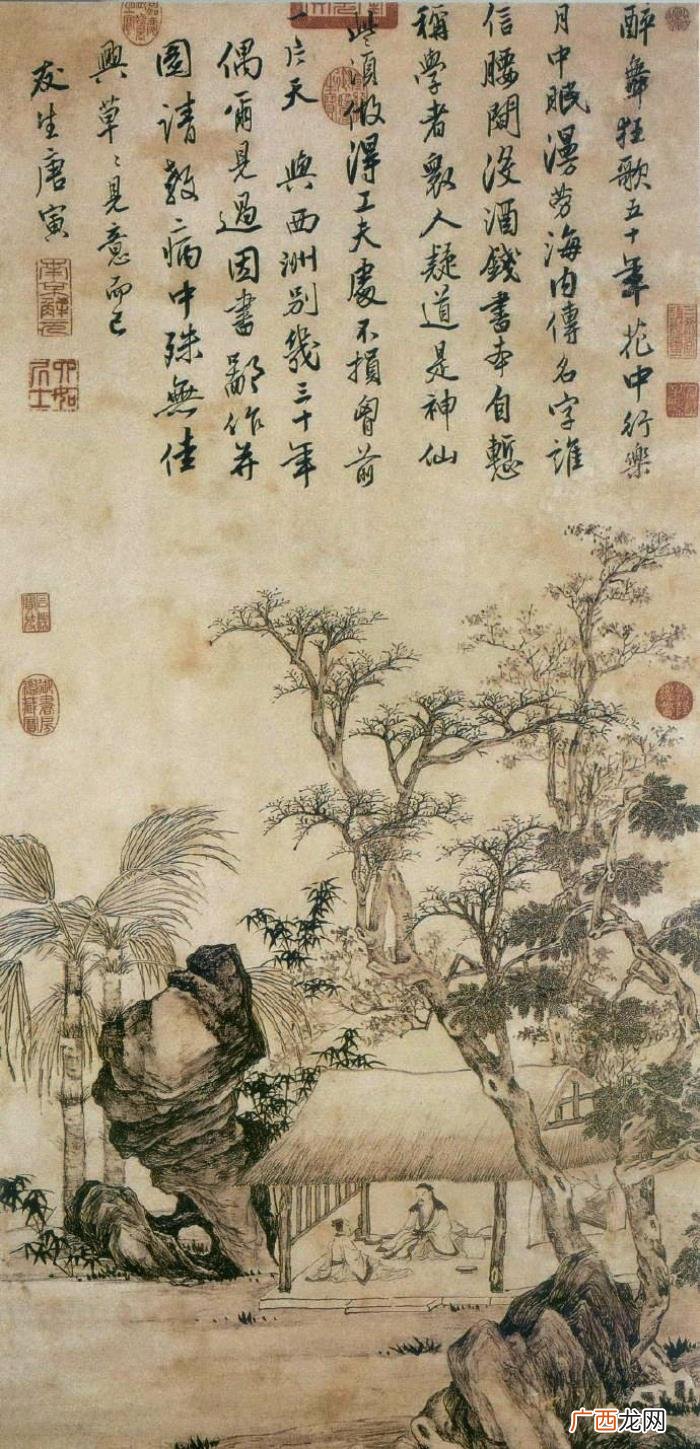 醉舞狂歌五十年花中行樂
月中眠漫勞海內傳名字誰
信腰間沒酒錢書本自慙
稱學者衆人疑道是神仙
些須做得工夫處不損胷前
一片天 與西洲別幾三十年
偶爾見過因書鄙作并
圖請教病中殊無佳
興草〻見意而已
友生唐寅
南京解元
六如居士
广西龙网